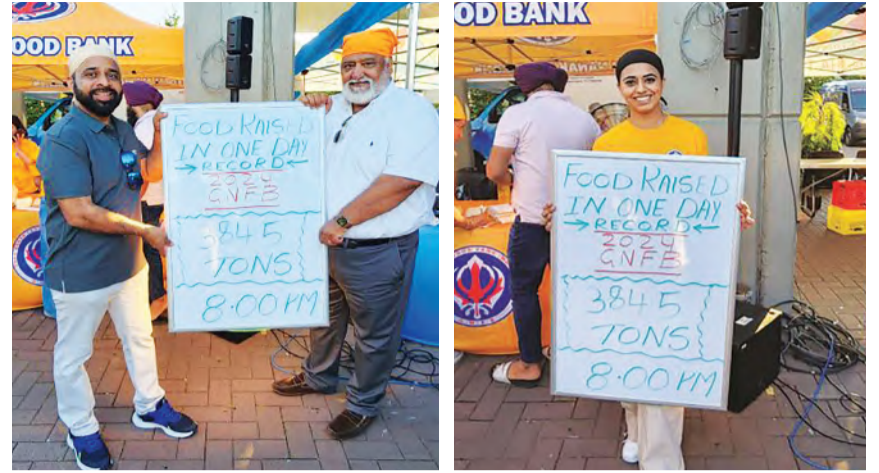 OOD BANK
FOOD RAISED
IN ONE DAY
→RECORD←
2024
GNFB
3845
TONS
8.00 PM
OOD BANK
FOOD RAISED
IN ONE DAY
→RECORD←
2024
GNFB
3845
TONS
8.00 PM